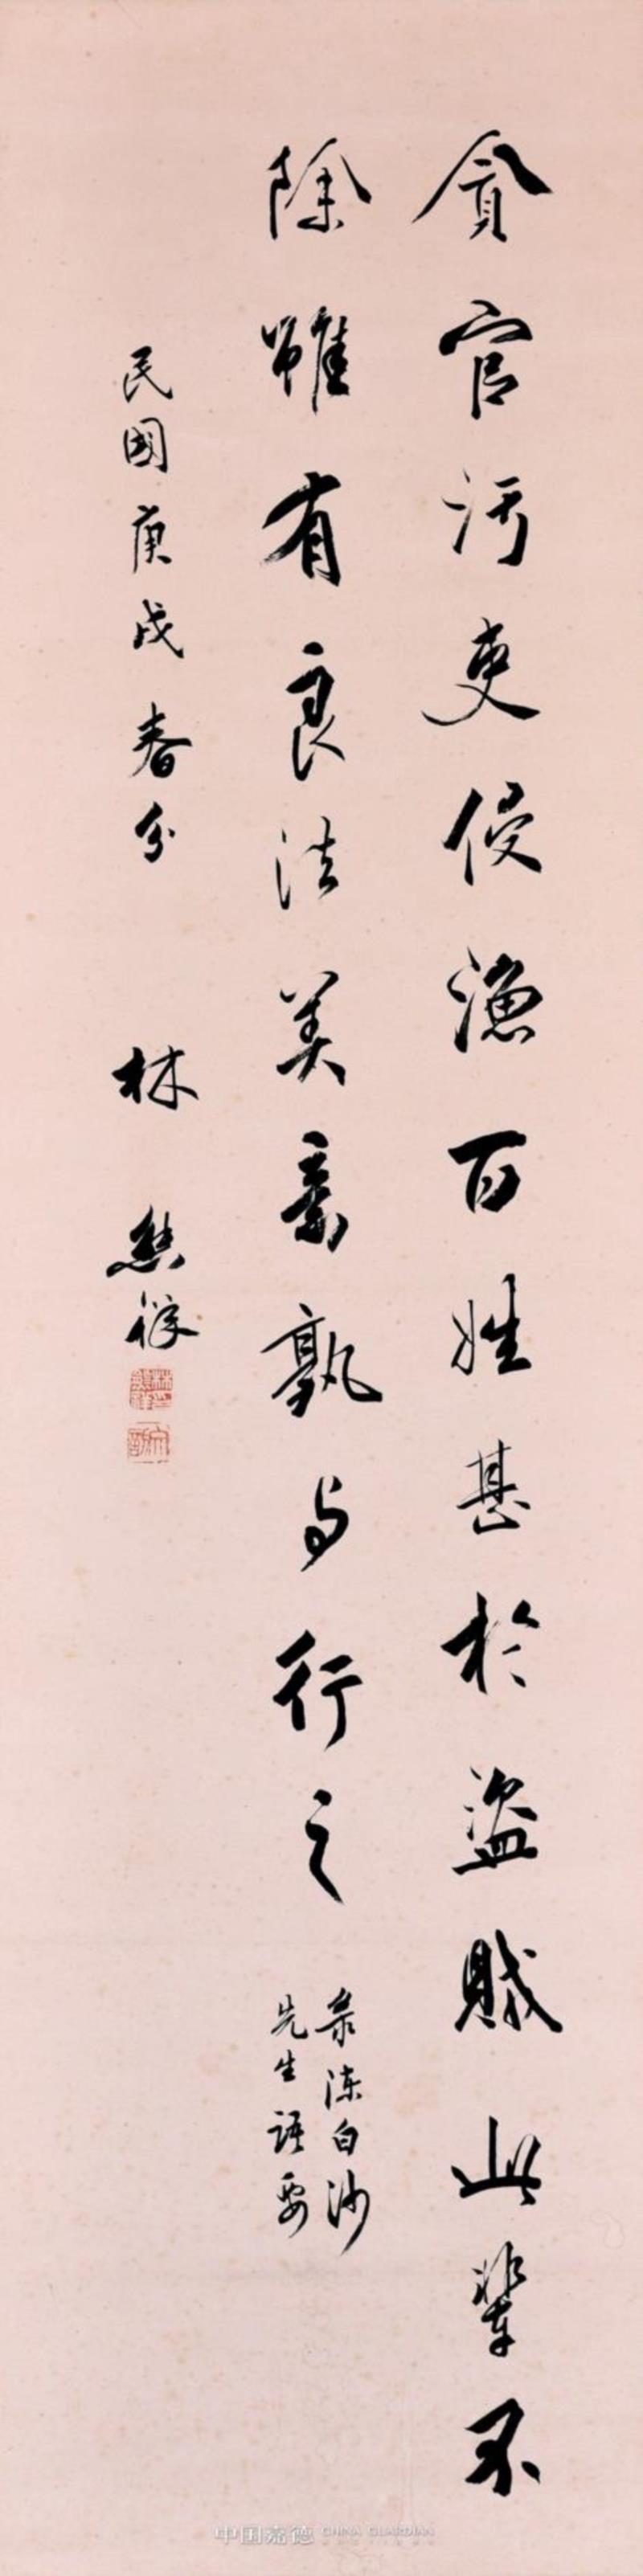 貪官污吏侵漁百姓甚於盜賊此輩不
除雖有良法美意孰与行之
录陈白沙
先生語要
民國庚戌春分
林熊祥
中国嘉德 CHINA GUARDIAN